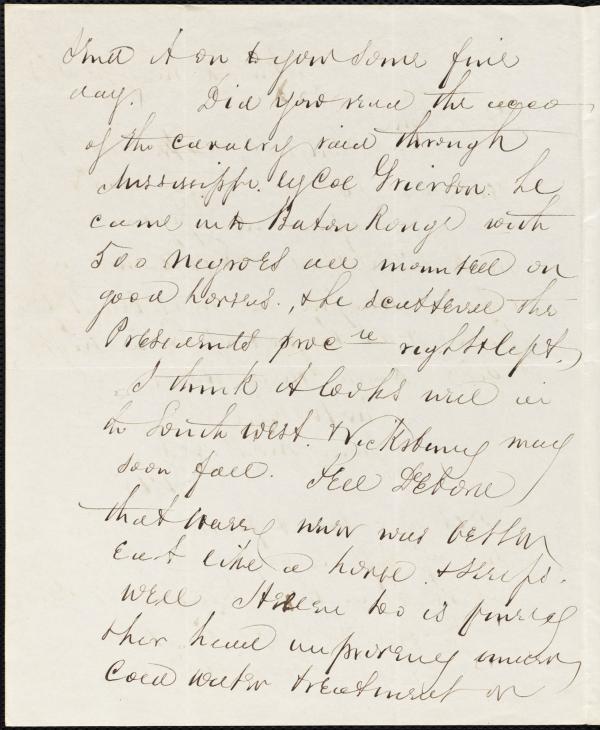 send it on to you some fine
day. Did you read the acco
of the cavalry raid through
Mississippi. by Col Grierson. he
came into Baton Rouge with
500 Negroes all mounted on
good horses., & he scattered the
Presidents proc re right & left.
I think it looks well in
the South West. & Vicksburg may
soon fall. Tell
that never was better
eat like a horse. & sleeps.
well Helen too is finely
& her head improving under
cold water treatment or